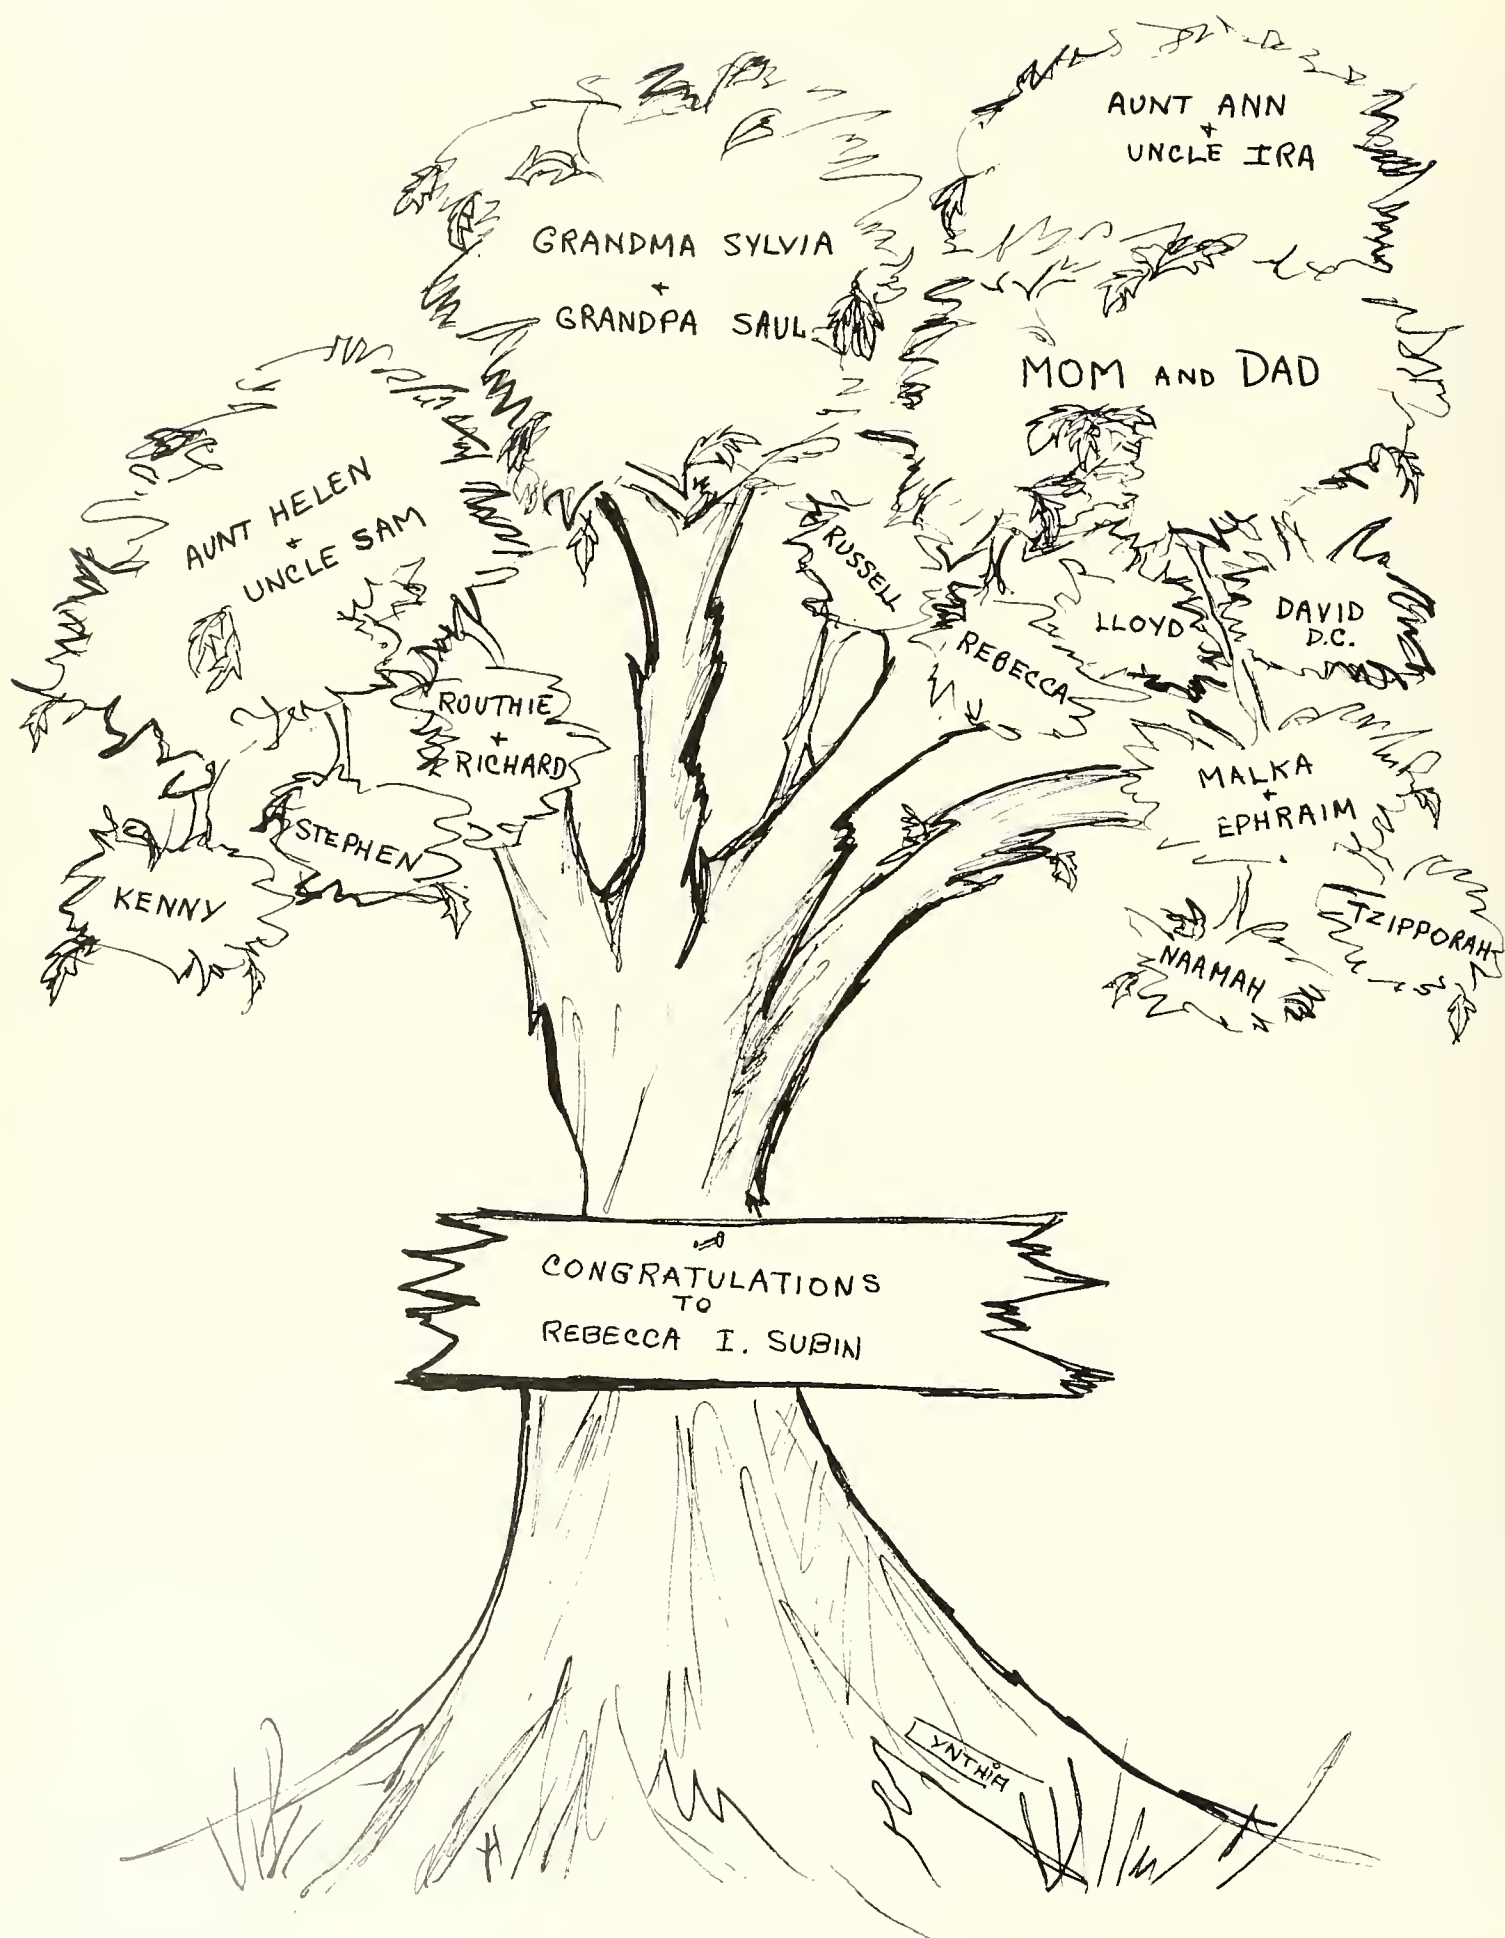 AUNT ANN
+
UNCLE IRA
GRANDMA SYLVIA
+
GRANDPA SAUL
MOM AND DAD
AUNT HELEN
+
UNCLE SAM
RUSSELL
REBECCA
LLOYD
DAVID
D.C.
ROUTHIE
+
RICHARD
STEPHEN
KENNY
MALKA
+
EPHRAIM
TZIPPORAH
NAAMAH
CONGRATULATIONS
TO
REBECCA I. SUBIN
CYNTHIA